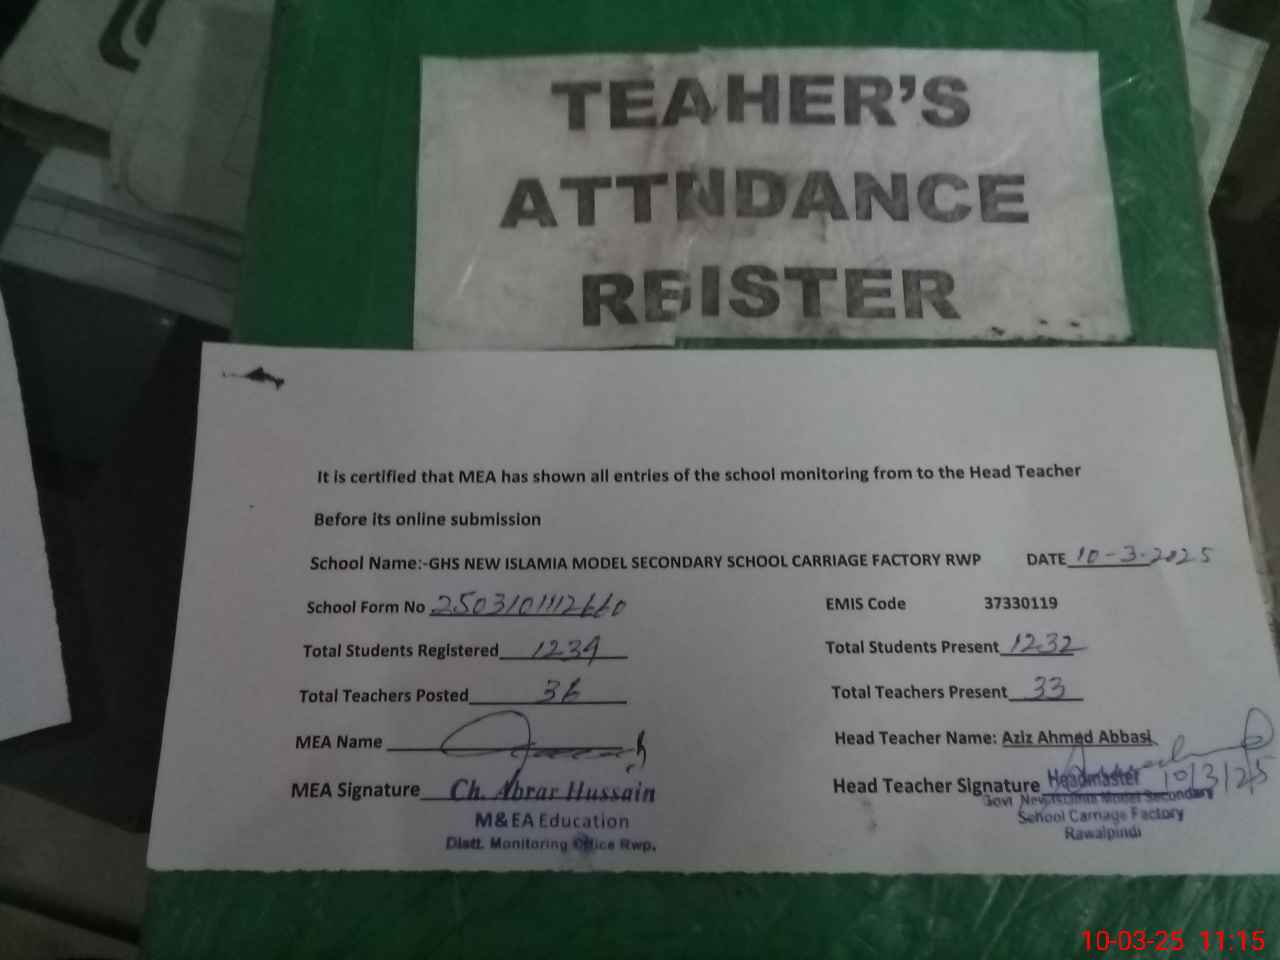 TEAHER'S
ATTNDANCE
REISTER
It is certified that MEA has shown all entries of the school monitoring from to the Head Teacher
Before its online submission
School Name:-GHS NEW ISLAMIA MODEL SECONDARY SCHOOL CARRIAGE FACTORY RWP DATE 10-3-2025
School Form No EMIS Code 37330119
Total Students Registered 1234 Total Students Present 1232
Total Teachers Posted 36 Total Teachers Present 33
MEA Name Head Teacher Name: Aziz Ahmed Abbasi
MEA Signature Ch. Abrar Hussain Head Teacher Signature Headmaster 10/3/25
M&EA Education Govt New Islamia Model Secondary
Distt. Monitoring Office Rwp. School Carriage Factory
Rawalpindi
10-03-25 11:15